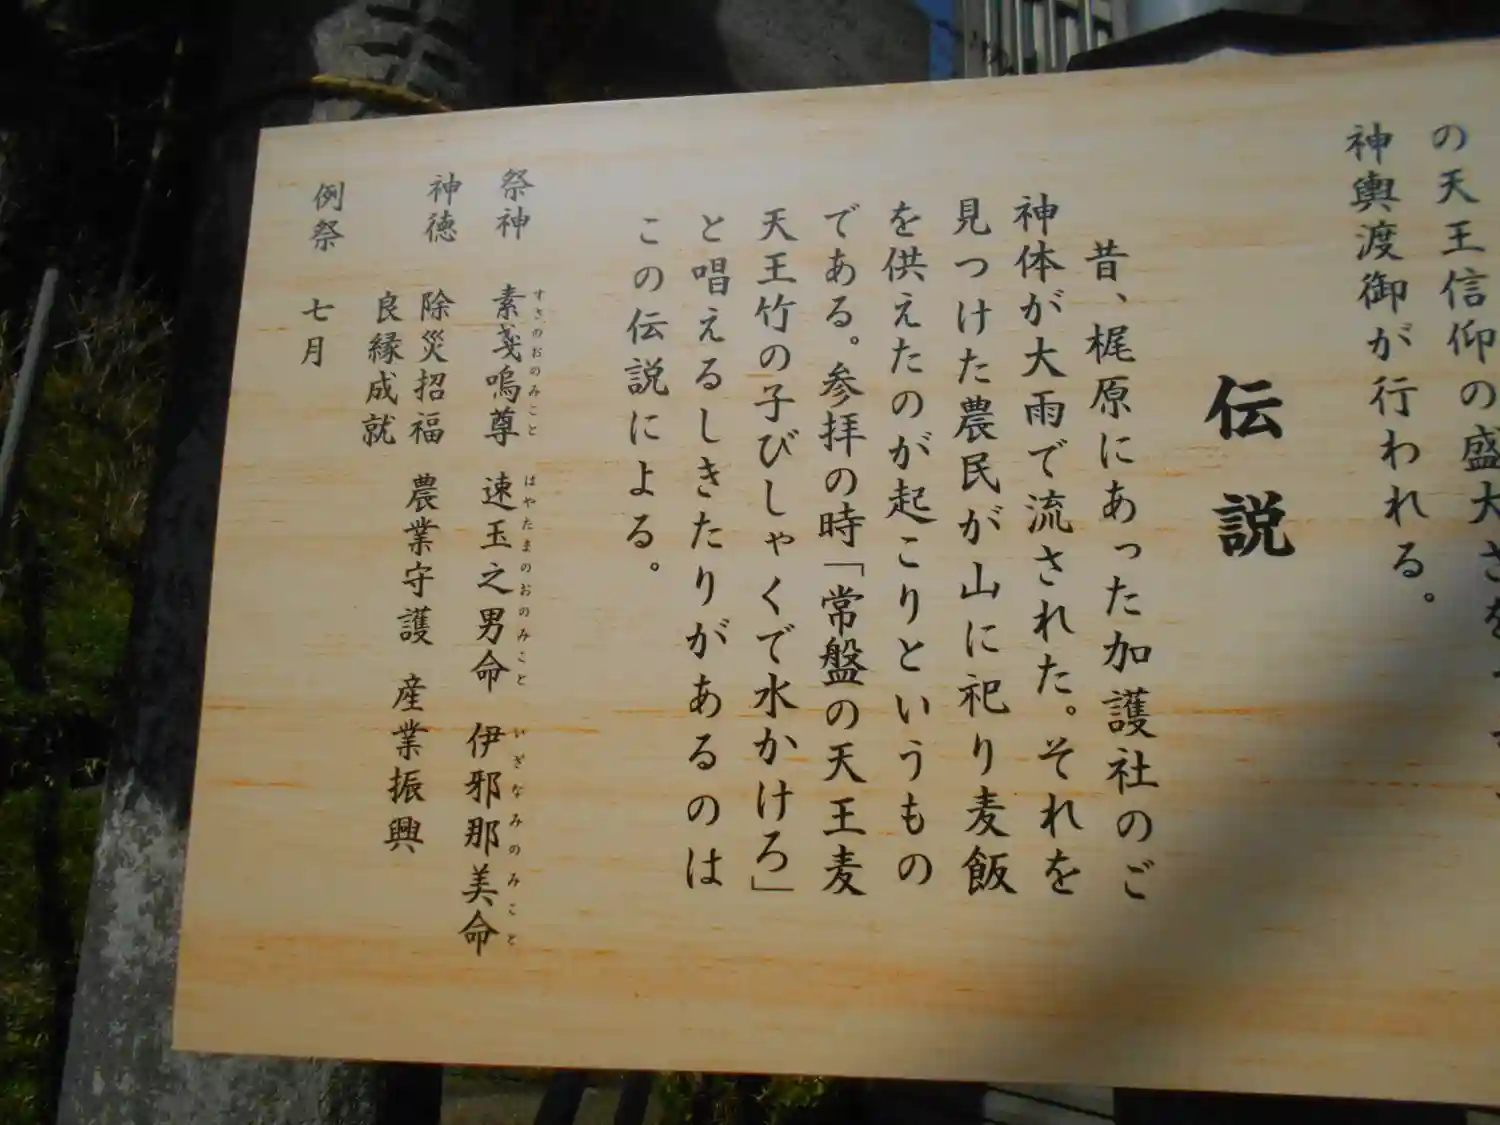 の天王信仰の盛大さを
神輿渡御が行われる。
伝説
昔、梶原にあった加護社のご
神体が大雨で流された。それを
見つけた農民が山に祀り麦飯
を供えたのが起こりというもの
である。参拝の時「常盤の天王麦
天王竹の子びしゃくで水かけろ」
と唱えるしきたりがあるのは
この伝説による。
祭神 素戔嗚尊 速玉之男命 伊邪那美命
すさのおのみこと はやたまのおのみこと いざなみのみこと
神徳 除災招福 農業守護 産業振興
良縁成就
例祭 七月